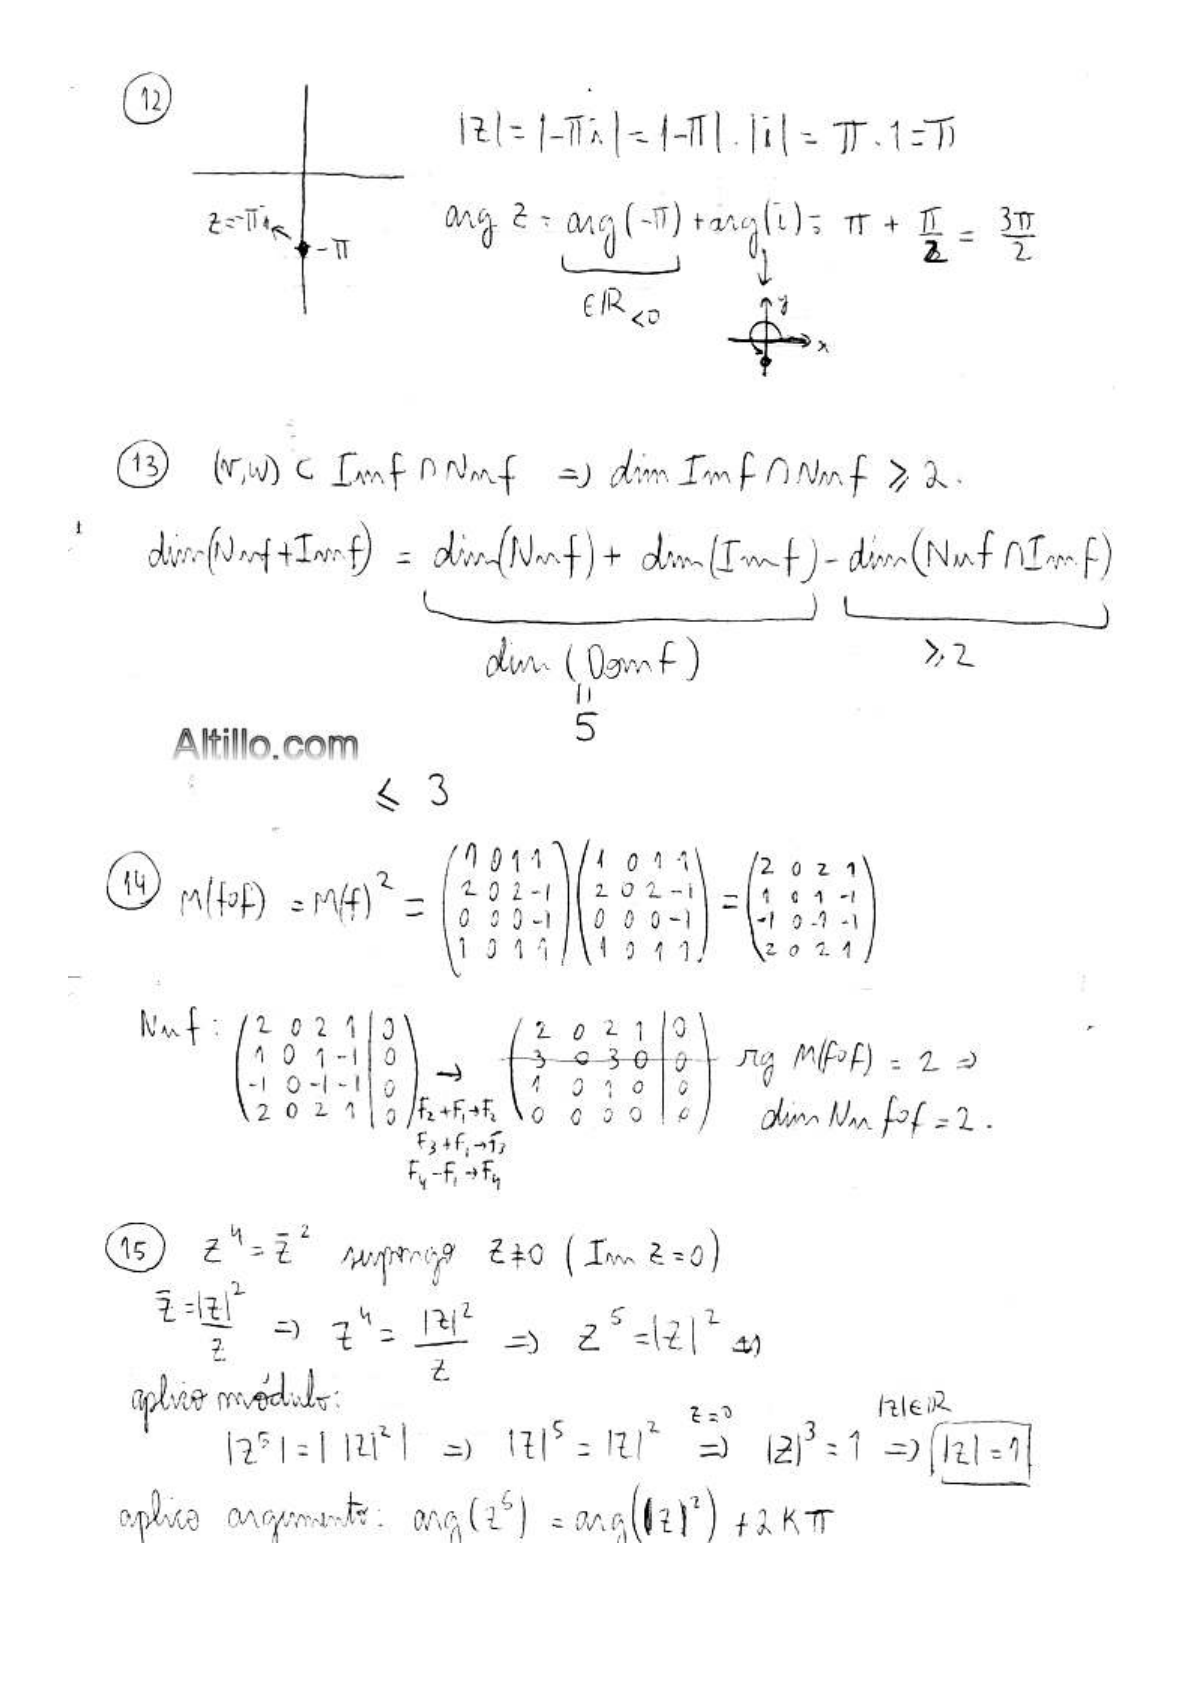 12
|z| = |-πi| = |-π| . |i| = π . 1 = π
arg z = arg(-π) + arg(i) = π + π/2 = 3π/2
z=-πi
-π
∈ℝ<0
y
x
13 (v,w) ⊂ Imf ∩ Nuf ⇒ dim Imf ∩ Nuf ⩾ 2.
dim(Nuf+Imf) = dim(Nuf) + dim(Imf) - dim(Nuf ∩ Imf)
dim (Domf) ⩾2
=
5
Altillo.com
⩽ 3
14 M(fof) = M(f)² = (1 0 1 1; 2 0 2 -1; 0 0 0 -1; 1 0 1 1) (1 0 1 1; 2 0 2 -1; 0 0 0 -1; 1 0 1 1) = (2 0 2 1; 1 0 1 -1; -1 0 -1 -1; 2 0 2 1)
Nuf: (2 0 2 1 | 0; 1 0 1 -1 | 0; -1 0 -1 -1 | 0; 2 0 2 1 | 0) → (2 0 2 1 | 0; 3 0 3 0 | 0; 1 0 1 0 | 0; 0 0 0 0 | 0) rg M(fof) = 2 ⇒
dim Nu fof = 2.
F2+F1→F2
F3+F1→F3
F4-F1→F4
15 z⁴ = z̄² supongo z≠0 (Im z=0)
z̄ = |z|²/z ⇒ z⁴ = |z|²/z ⇒ z⁵ = |z|² ⇒
aplico módulo:
|z⁵| = | |z|² | ⇒ |z|⁵ = |z|² z=0 ⇒ |z|³ = 1 |z|∈ℝ ⇒ |z| = 1
aplico argumento: arg(z⁵) = arg(|z|²) + 2kπ